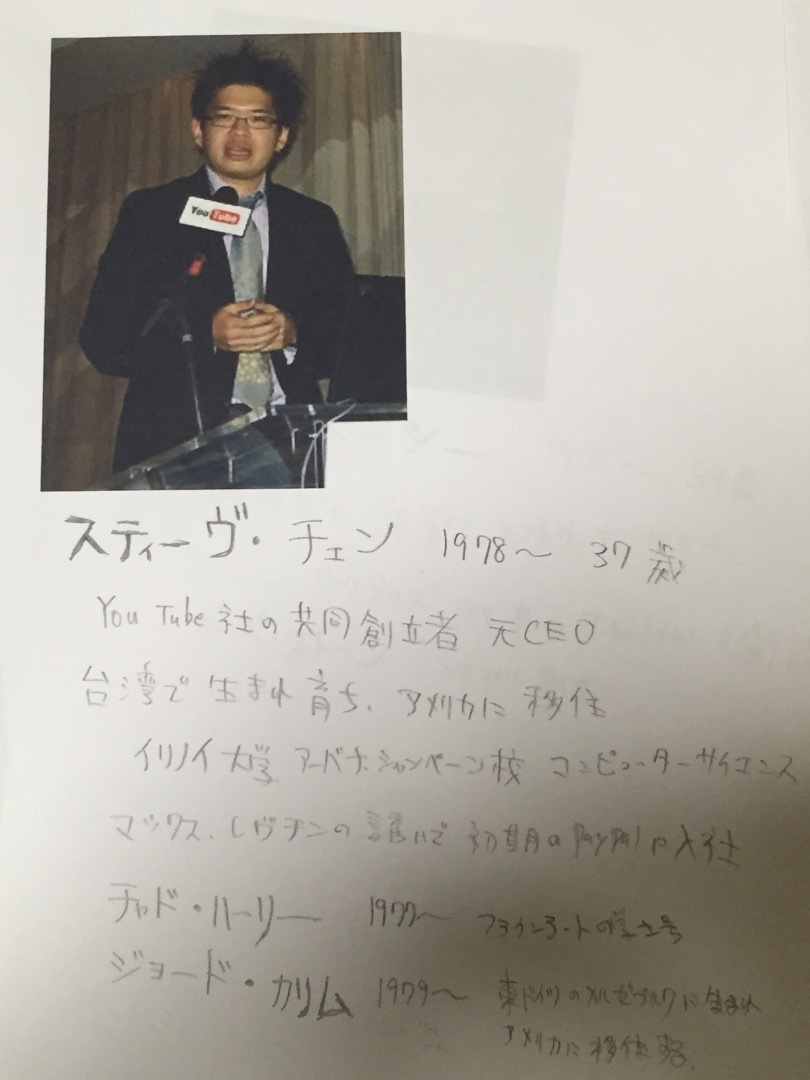 YouTube
スティーヴ・チェン 1978〜 37歳
YouTube社の共同創立者 元CEO
台湾で生まれ育ち、アメリカに移住
イリノイ大学 アーバナ・シャンペーン校 コンピューターサイエンス
マックス・レヴチンの誘いで 初期のPayPalに入社
チャド・ハーリー 1977〜 ファインアートの学士号
ジョード・カリム 1979〜 東ドイツのメルゼブルクに生まれ
アメリカに移住